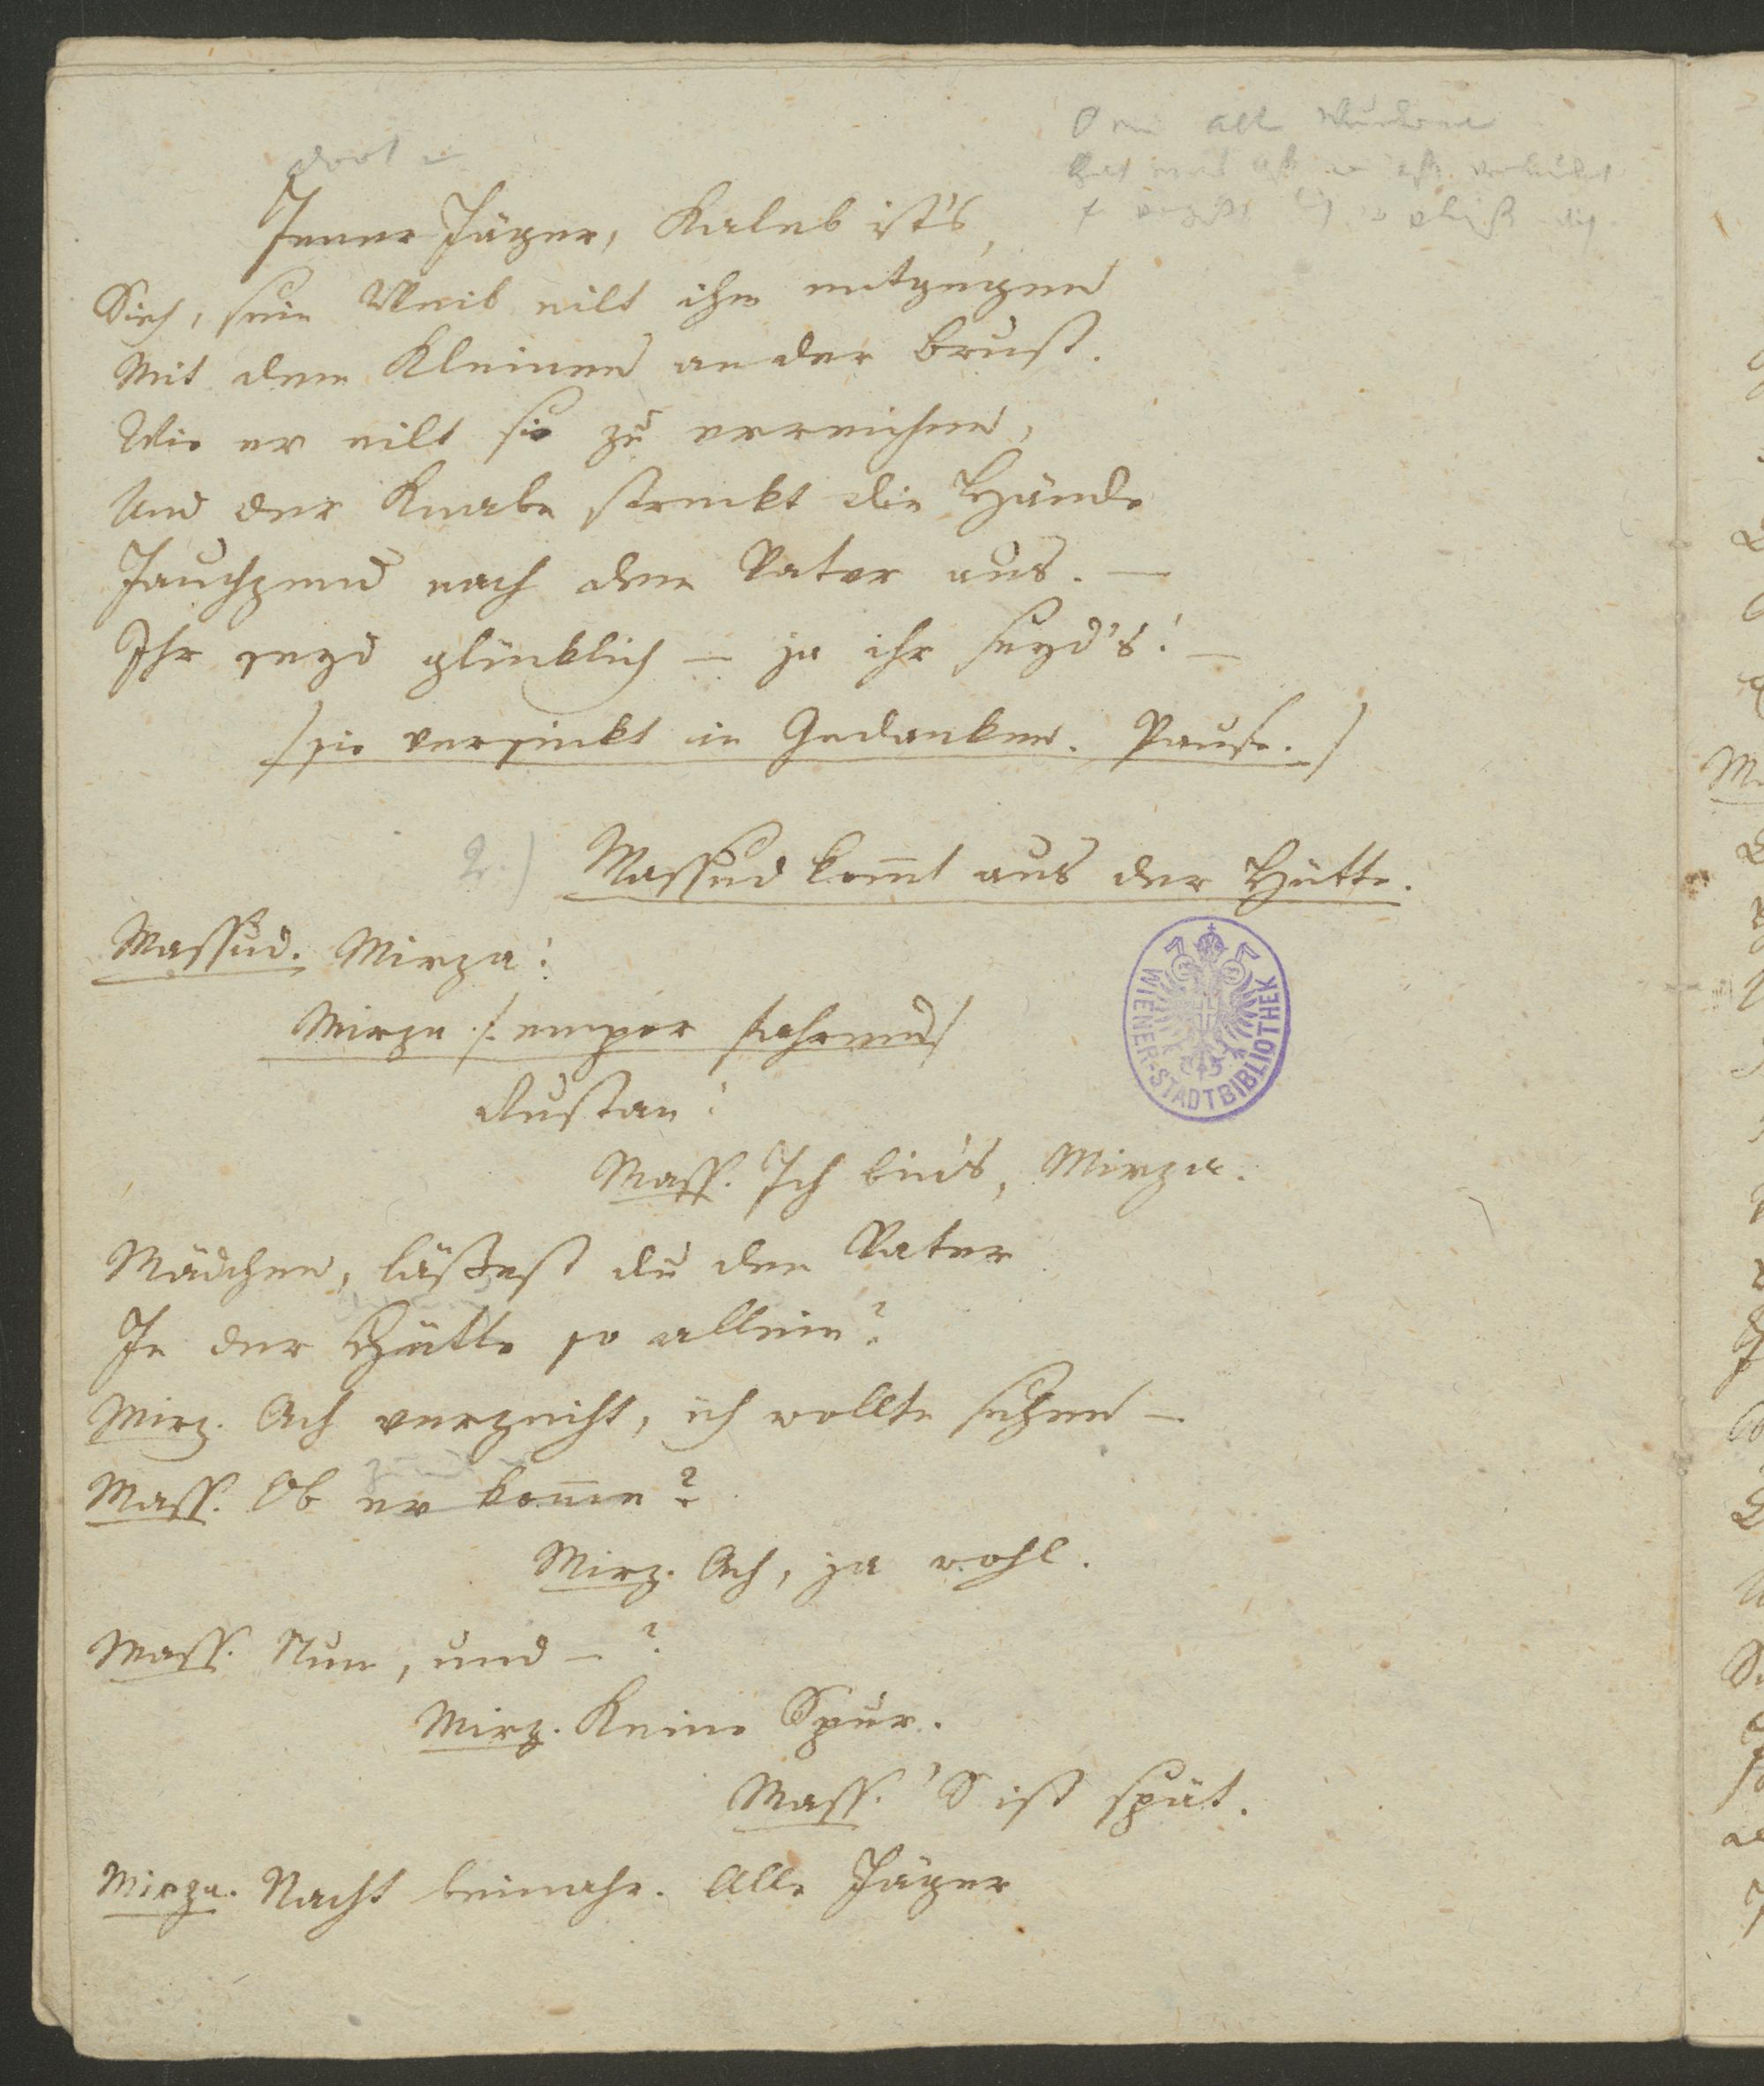 dort
Jener Jäger, Kaleb ist's,
Sieh, sein Weib eilt ihm entgegen
Mit dem Kleinen an der Brust.
Wie er eilt sie zu erreichen,
Und der Knabe streckt die Hände
Jauchzend nach dem Vater aus. —
Ihr seyd glücklich — ja ihr seyd's! —
/sie versinkt in Gedanken. Pause./
2.) Massud kom̄t aus der Hütte.
Massud. Mirza!
Mirza /: empor fahrend/
Rustan!
Mass. Ich bin's, Mirza.
Mädchen, läßest du den Vater
In der Hütte so allein?
Mirz. Ach verzeiht, ich wollte sehen —
Mass. Ob er kom̄e?
Mirz. Ach, ja wohl.
Mass. Nun, und — ?
Mirz. Keine Spur.
Mass. 'S ist spät.
Mirza. Nacht beinahe. Alle Jäger
WIENER-STADTBIBLIOTHEK